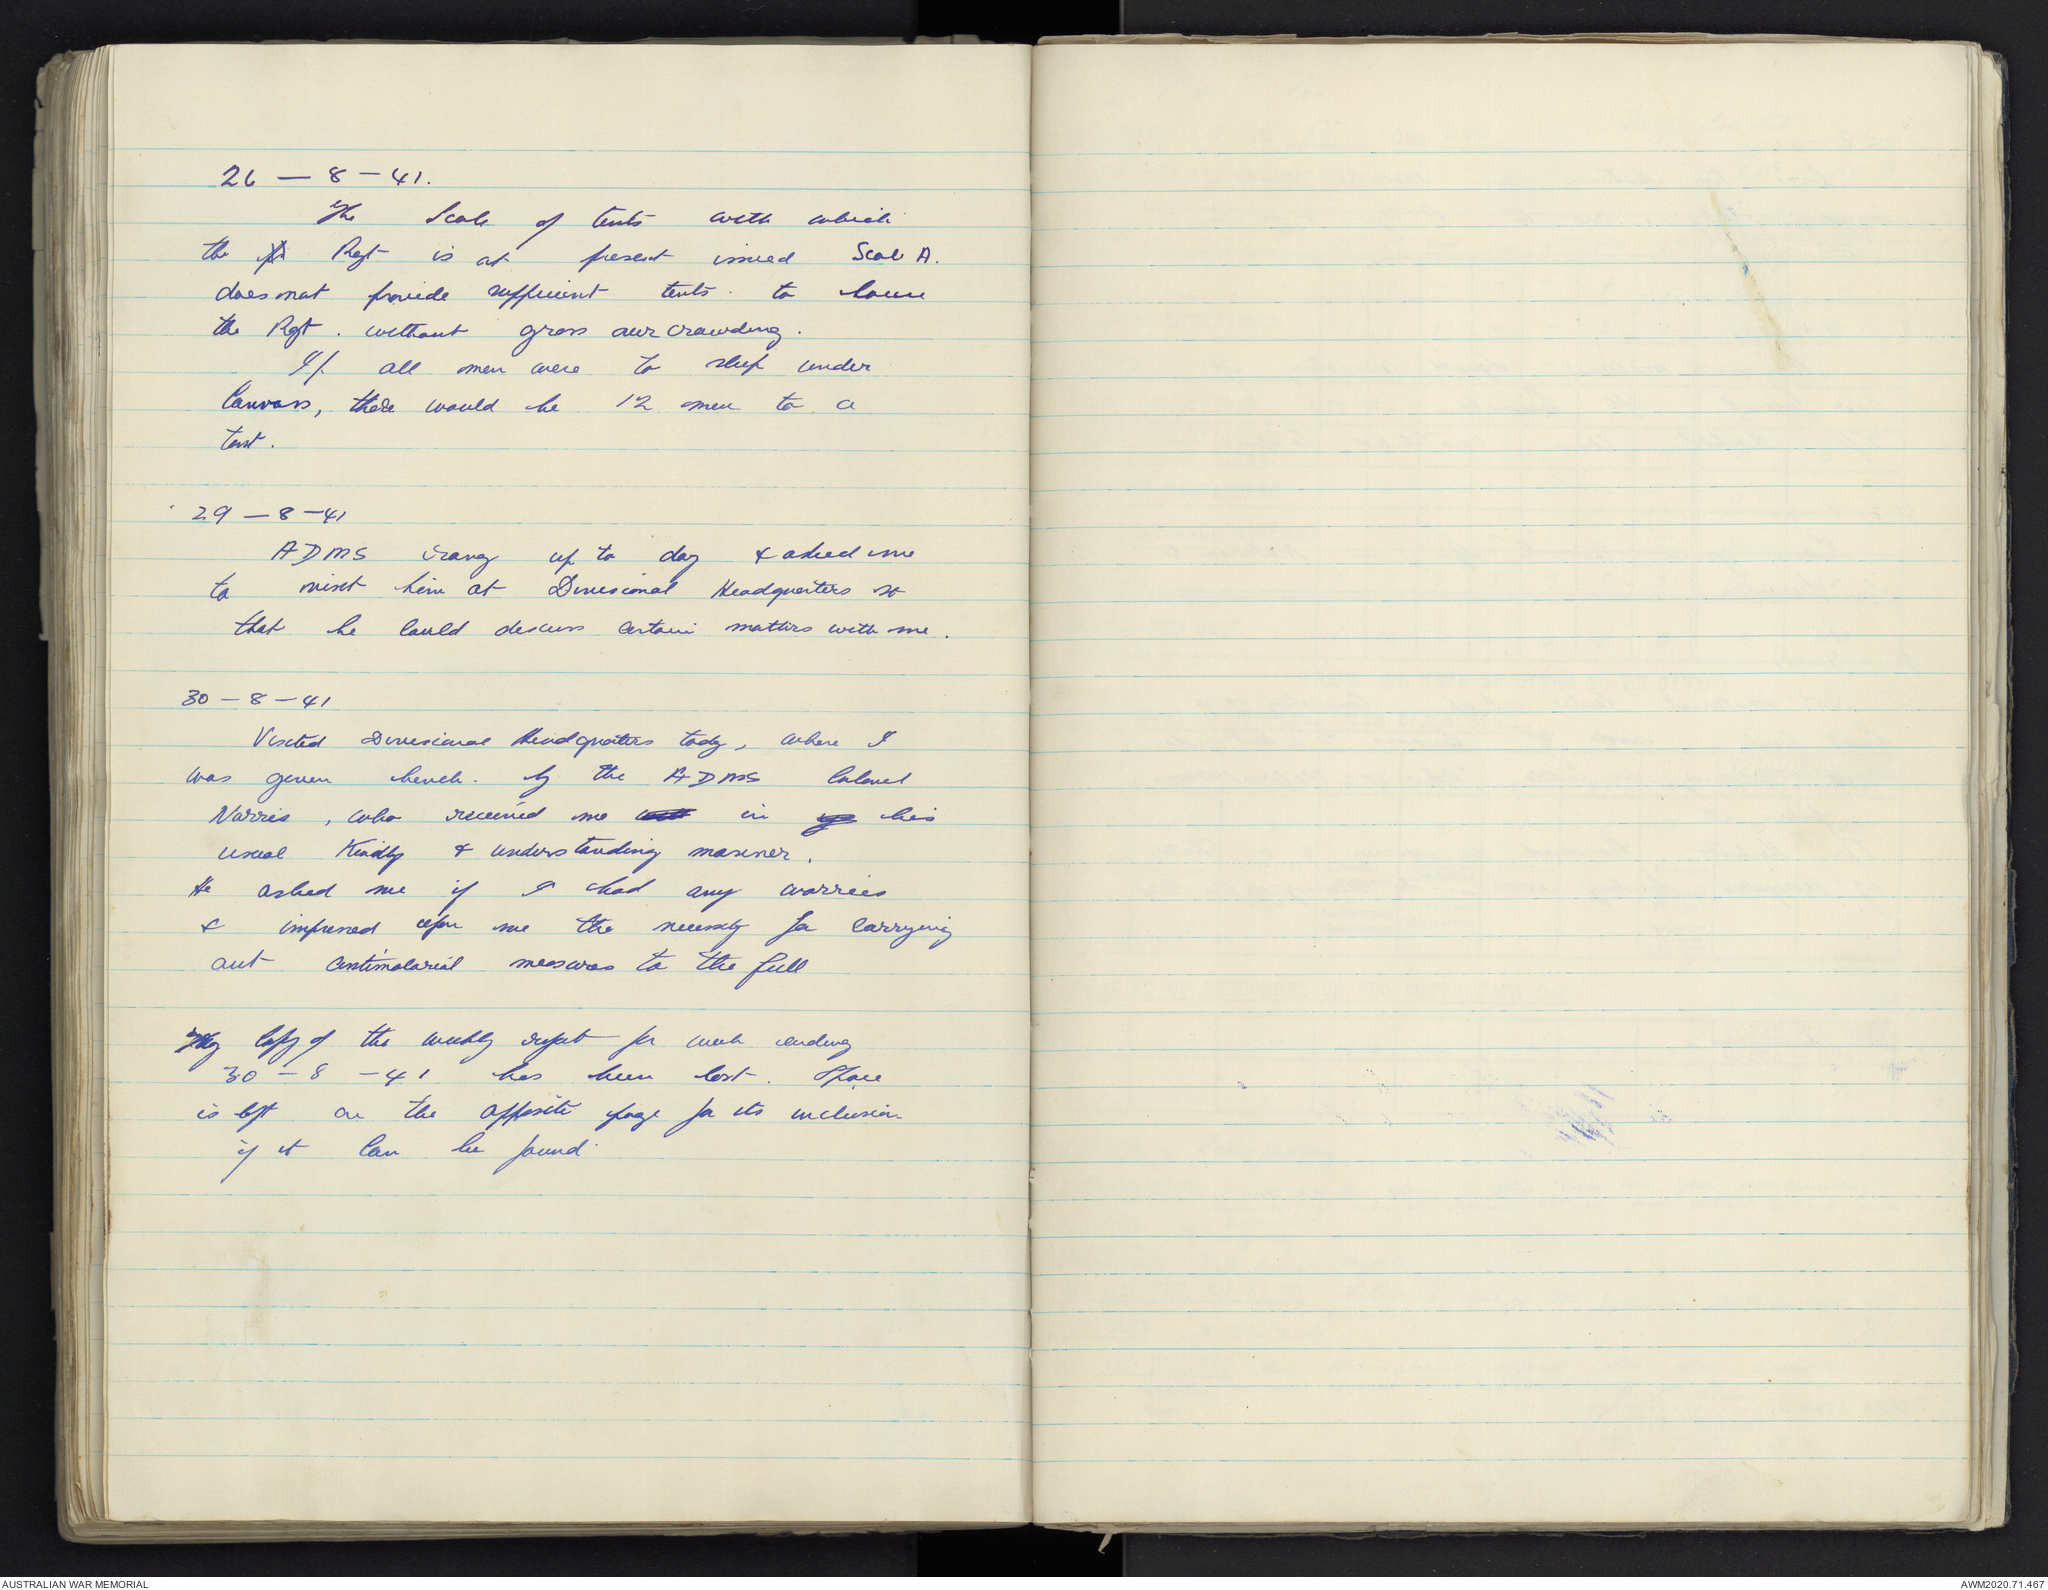 26 — 8 — 41.
The Scale of tents with which
the Regt is at present issued Scale A.
does not provide sufficient tents. to house
the Rgt. without gross overcrowding.
If all men were to sleep under
Canvass, there would be 12 men to a
tent.
29 — 8 — 41
ADMS rang up to day & asked me
to visit him at Divisional Headquarters so
that he could discuss certain matters with me.
30 — 8 — 41
Visited Divisional Headquaters today, where I
was given lunch. by the ADMS Colonel
Norris, who received me in his
usual kindly & understanding manner.
He asked me if I had any worries
& impressed upon me the necessity for carrying
out antimalarial measures to the full
My copy of the weekly report for week ending
30 — 8 — 41 has been lost. Space
is left on the opposite page for its inclusion
if it can be found.
AUSTRALIAN WAR MEMORIAL
AWM2020.71.467